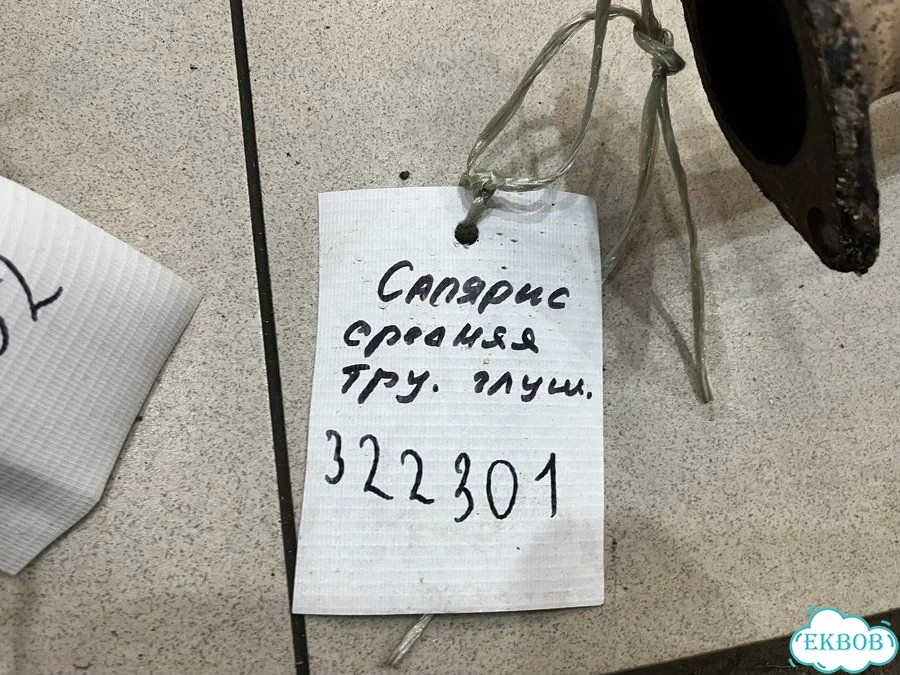 Салярис
средняя
тру. глуш.
322301
52
EKBOB